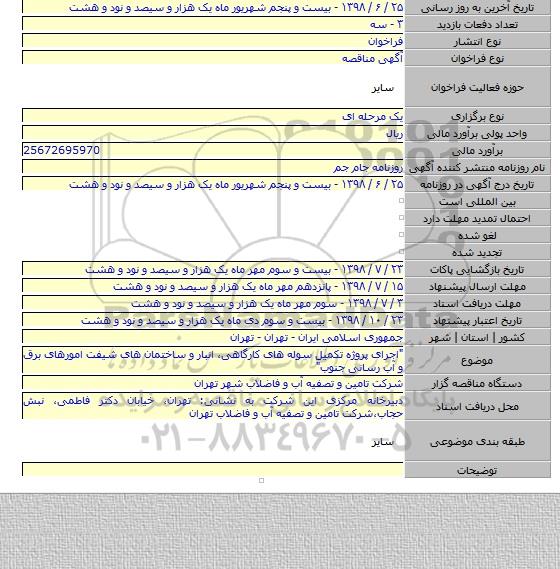 تاریخ آخرین به روز رسانی ۲۵ / ۶ / ۱۳۹۸ - بیست و پنجم شهریور ماه یک هزار و سیصد و نود و هشت
تعداد دفعات بازدید ۳ - سه
نوع انتشار فراخوان
نوع فراخوان آگهی مناقصه
حوزه فعالیت فراخوان سایر
نوع برگزاری یک مرحله ای
واحد پولی برآورد مالی ریال
برآورد مالی 25672695970
نام روزنامه منتشر کننده آگهی روزنامه جام جم
تاریخ درج آگهی در روزنامه ۲۵ / ۶ / ۱۳۹۸ - بیست و پنجم شهریور ماه یک هزار و سیصد و نود و هشت
بین المللی است
احتمال تمدید مهلت دارد
لغو شده
تجدید شده
تاریخ بازگشایی پاکات ۲۳ / ۷ / ۱۳۹۸ - بیست و سوم مهر ماه یک هزار و سیصد و نود و هشت
مهلت ارسال پیشنهاد ۱۵ / ۷ / ۱۳۹۸ - پانزدهم مهر ماه یک هزار و سیصد و نود و هشت
مهلت دریافت اسناد ۳ / ۷ / ۱۳۹۸ - سوم مهر ماه یک هزار و سیصد و نود و هشت
تاریخ اعتبار پیشنهاد ۲۳ / ۱۰ / ۱۳۹۸ - بیست و سوم دی ماه یک هزار و سیصد و نود و هشت
کشور | استان | شهر جمهوری اسلامی ایران - تهران - تهران
موضوع "اجرای پروژه تکمیل سوله های کارگاهی، انبار و ساختمان های شیفت امورهای برق
و آب رسانی جنوب"
دستگاه مناقصه گزار شرکت تامین و تصفیه آب و فاضلاب شهر تهران
محل دریافت اسناد دبیرخانه مرکزی این شرکت به نشانی: تهران، خیابان دکتر فاطمی، نبش
حجاب،شرکت تامین و تصفیه آب و فاضلاب تهران
طبقه بندی موضوعی سایر
توضیحات
۰۲۱-۸۸۳۴۹۶۷۰-۵